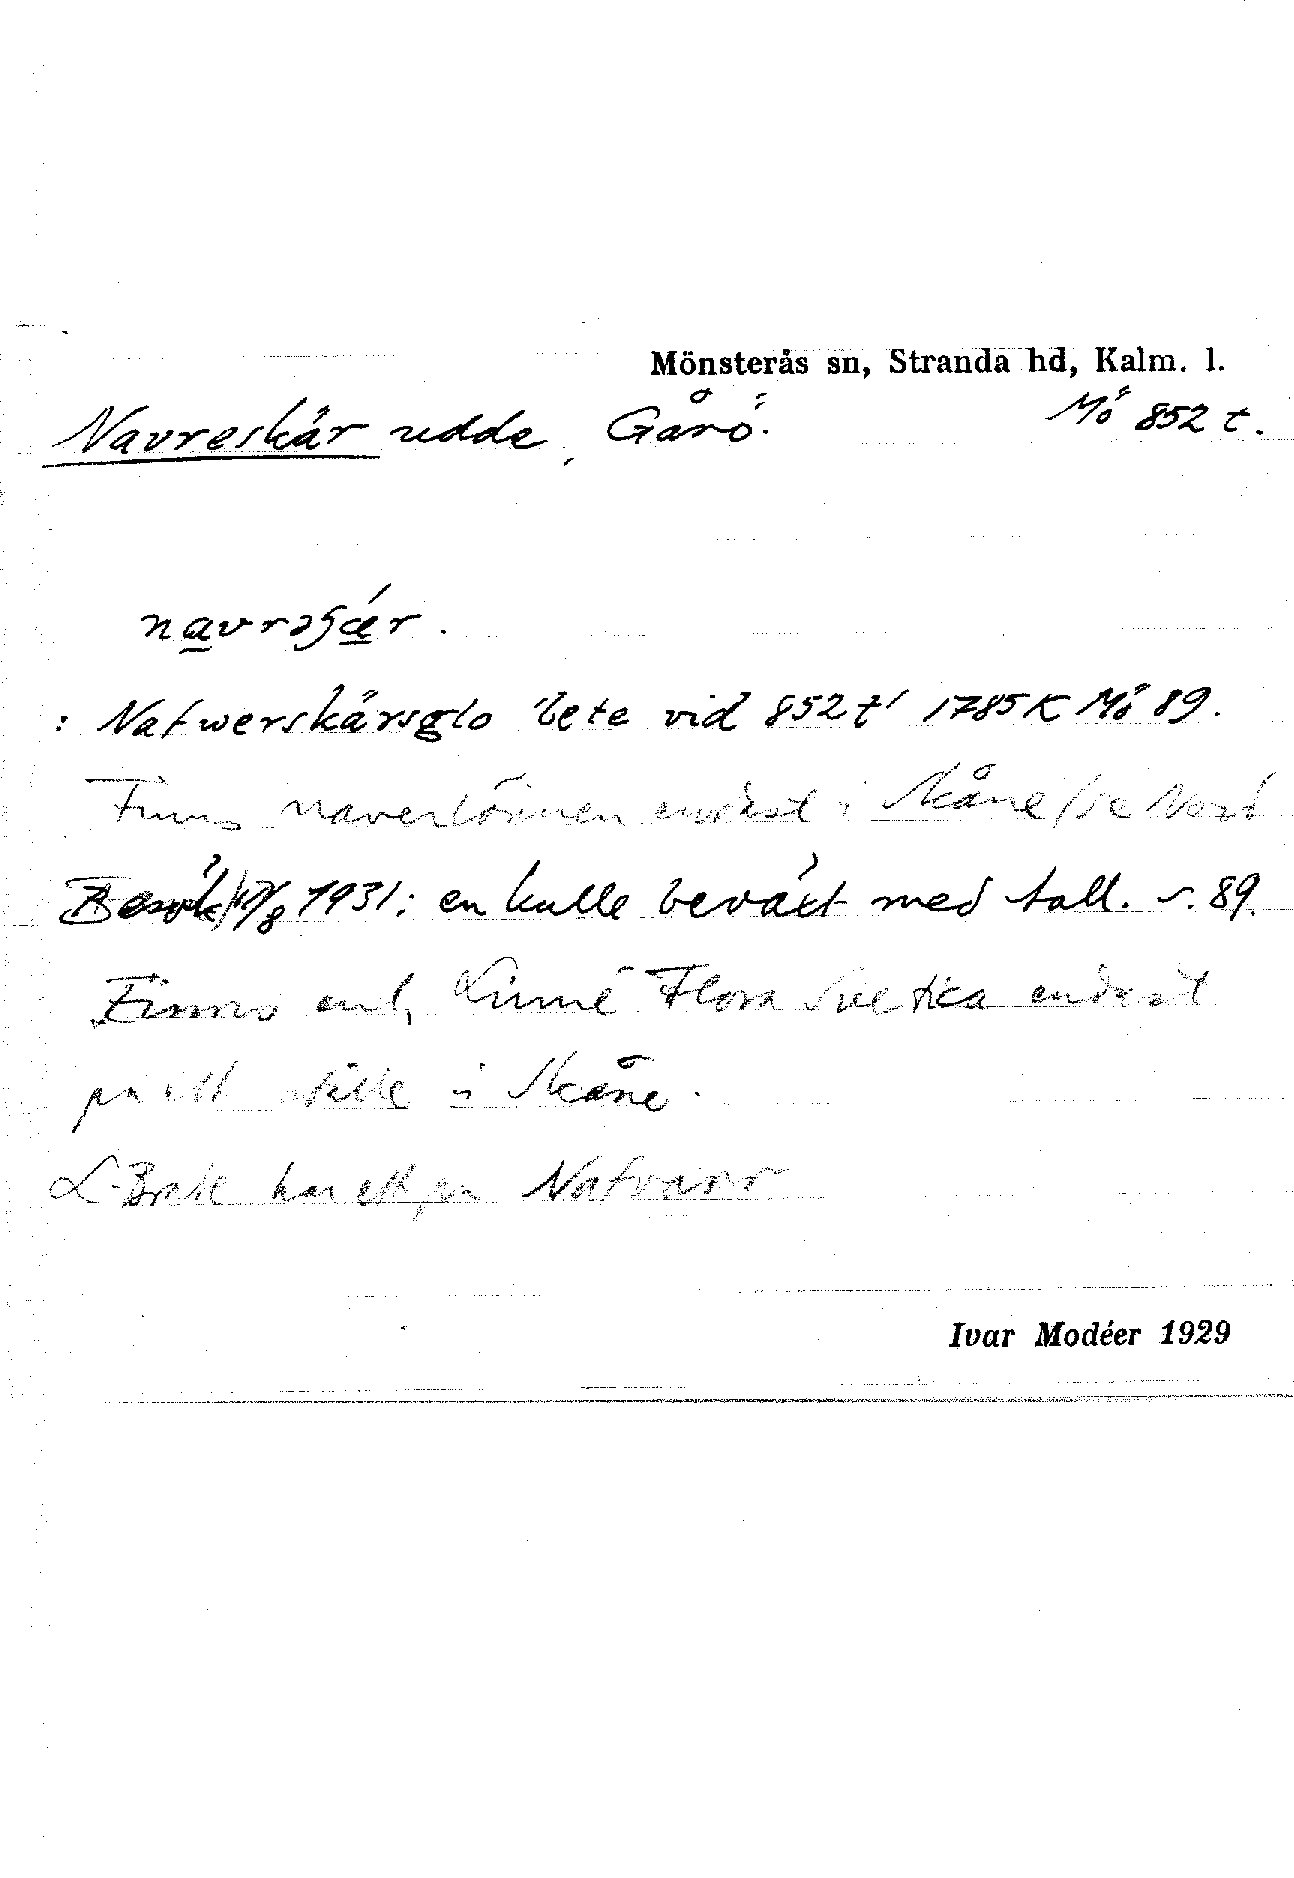 Mönsterås sn, Stranda hd, Kalm. l.
Navreskär udde, Gårö. Mö 852 t.
: Natwerskärsglo bete vid 852 t' 1785 K Mö 89.
Finns naverlönnen endast i Skåne
Besök 1931: en kulle beväxt med tall. s. 89.
Finnes enl. Linné Flora Svetica endast
på ett ställe i Skåne.
har ett
Ivar Modéer 1929